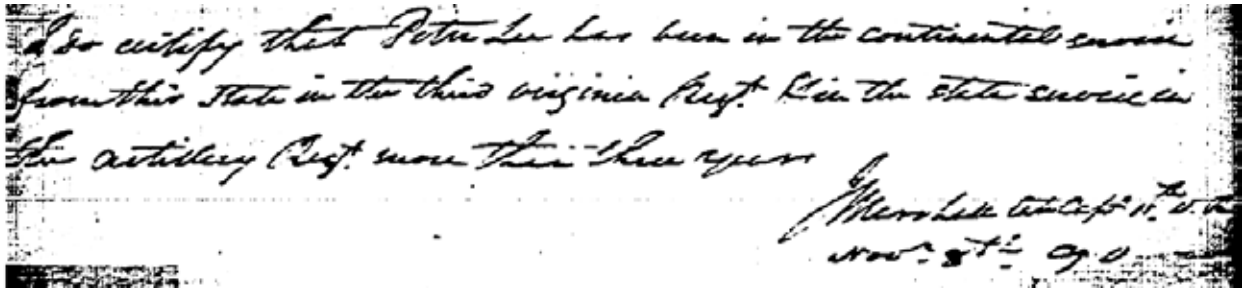 I do certify that Peter Lee has been in the continental service
from this State in the third virginia Regt. & in the state service in
the artillery Regt. more than three years
J Marshall late Capt 11th V.
Novr. 8th